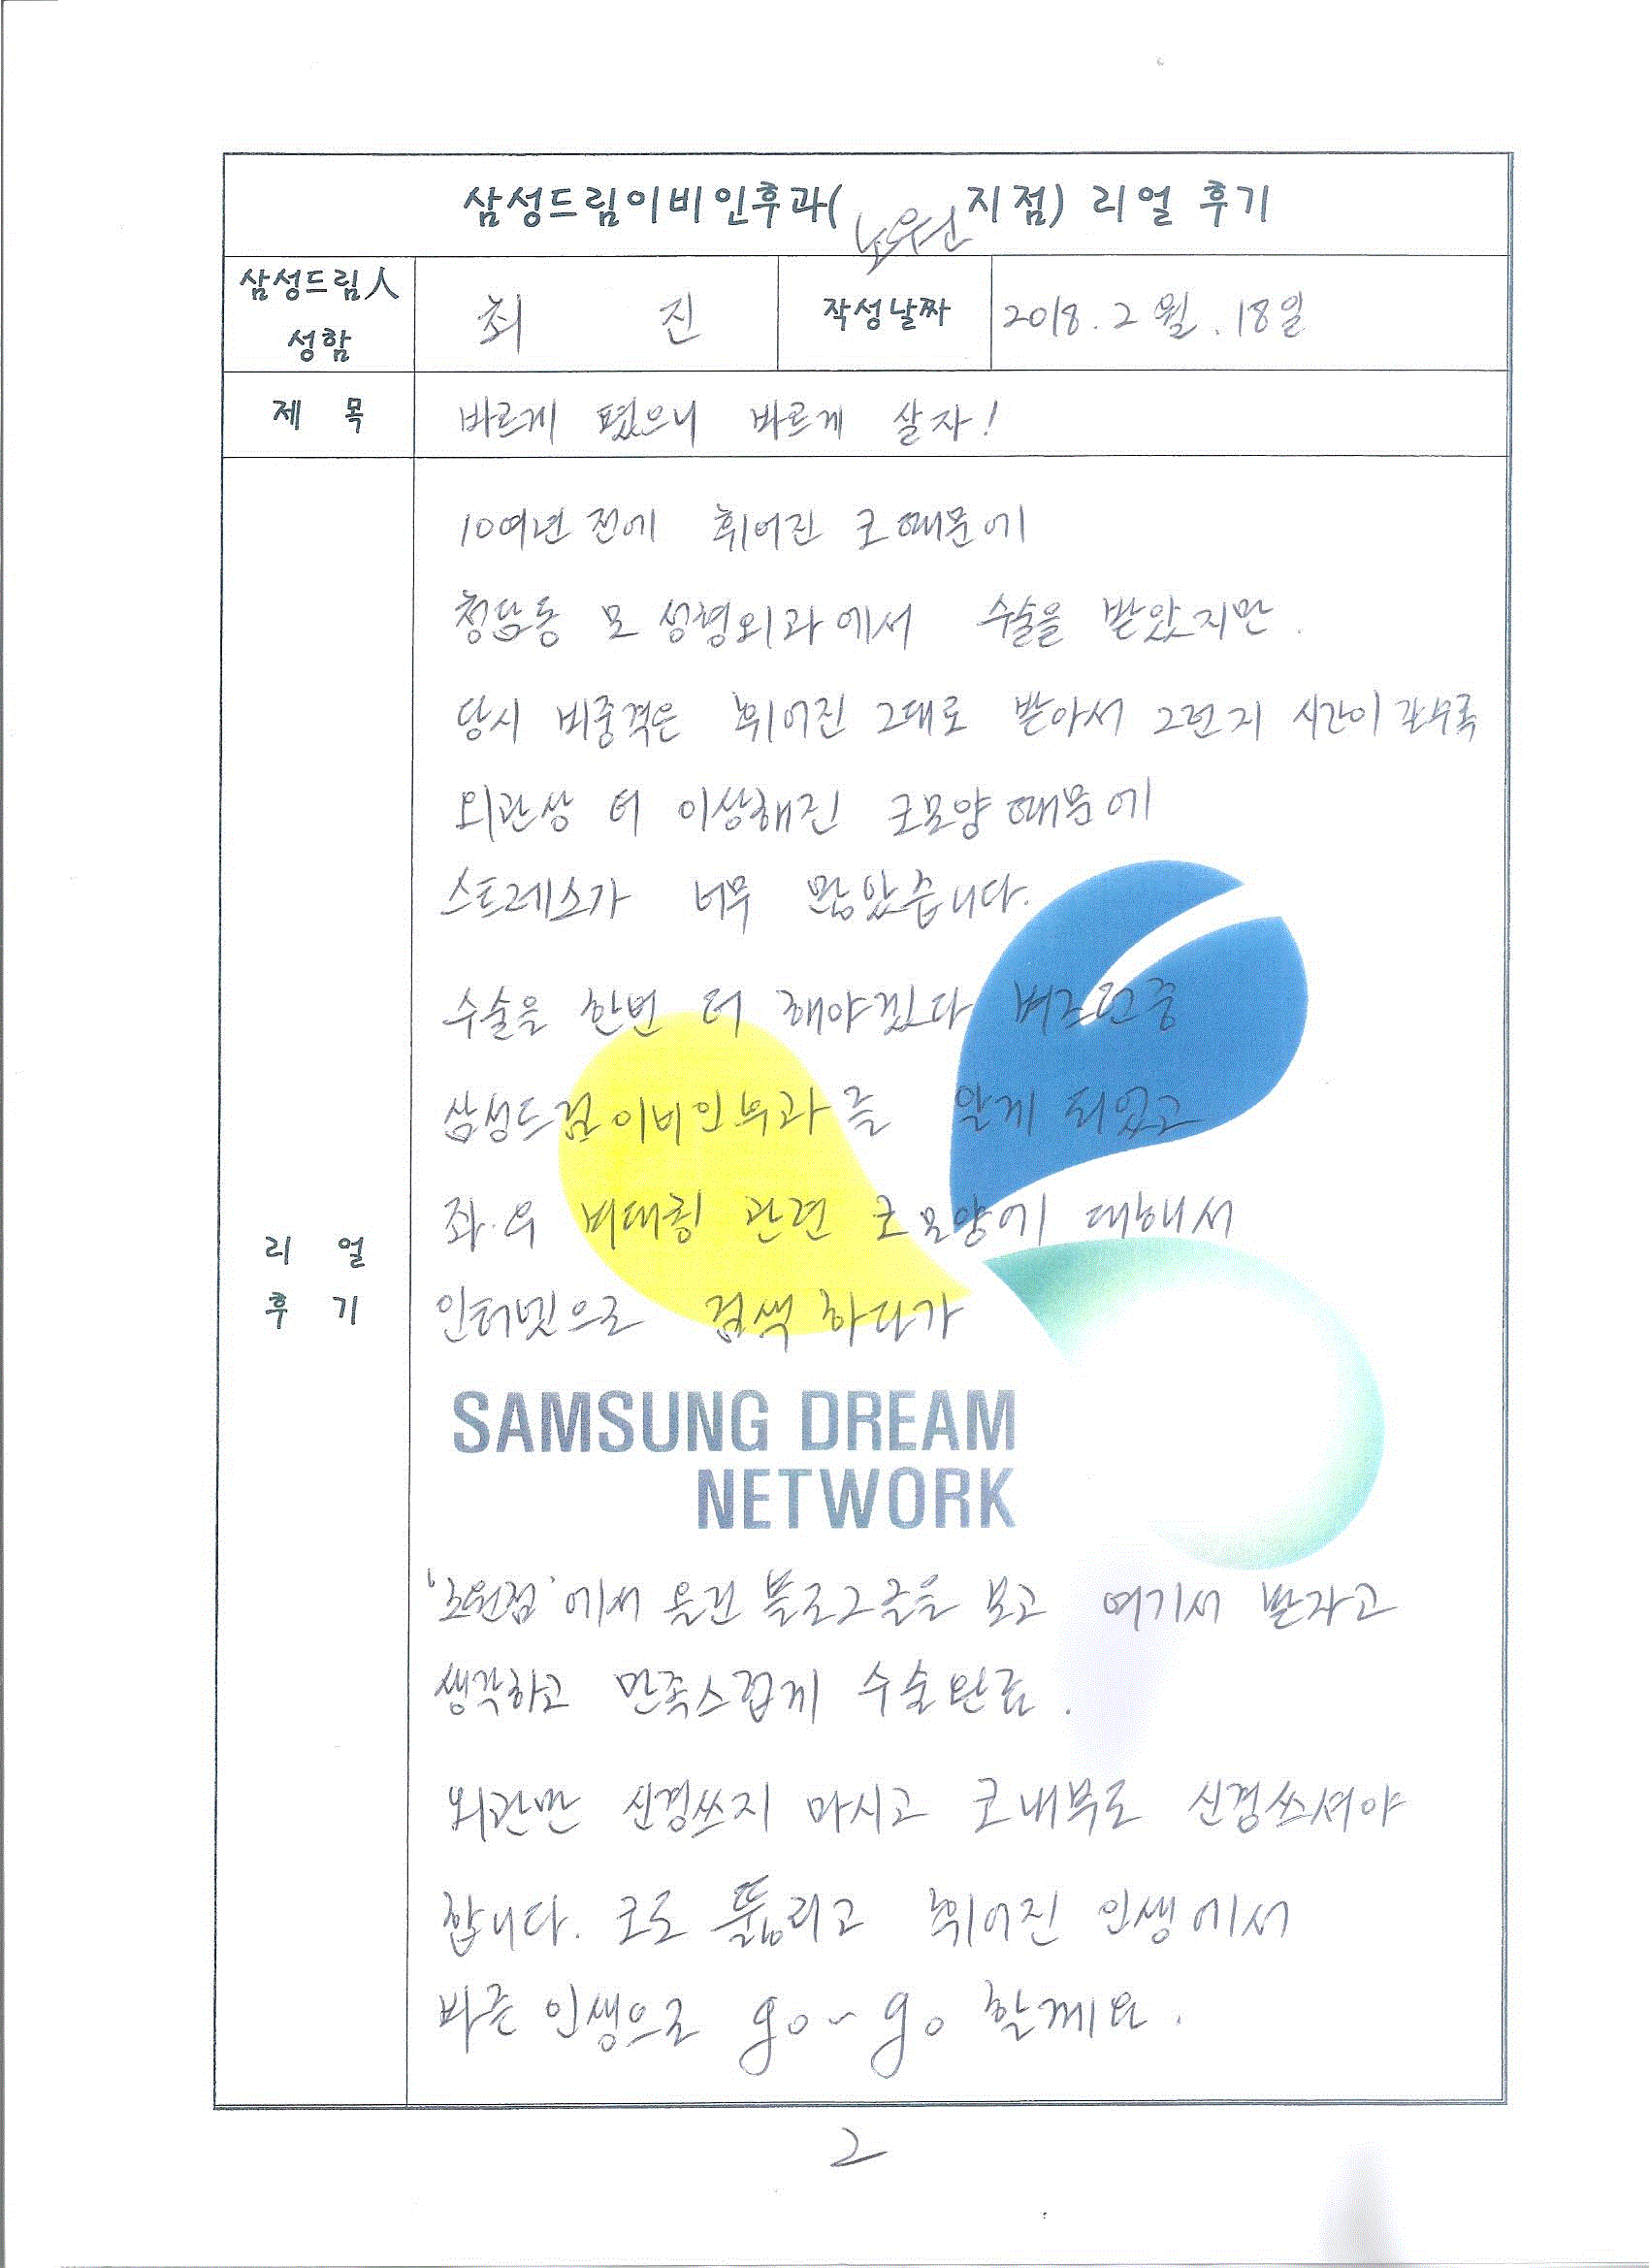 삼성드림이비인후과( 노원 지점) 리얼 후기
삼성드림人 성함
최 진
작성날짜
2018. 2월. 18일
제 목
바르게 폈으니 바르게 살자!
리 얼 후 기
10여년 전에 휘어진 코때문에
청담동 모 성형외과에서 수술을 받았지만.
당시 비중격은 휘어진 그대로 받아서 그런지 시간이 갈수록
외관상 더 이상해진 코모양때문에
스트레스가 너무 많았습니다.
수술을 한번 더 해야겠다 벼르던중
삼성드림이비인후과를 알게 되었고
좌.우 비대칭 관련 코모양에 대해서
인터넷으로 검색하다가
SAMSUNG DREAM
NETWORK
'노원점'에서 블로그글을 보고 여기서 받자고
생각하고 만족스럽게 수술완료.
외관만 신경쓰지 마시고 코내부도 신경쓰셔야
합니다. 코도 뚫리고 휘어진 인생에서
바른 인생으로 go~go 할께요.
2